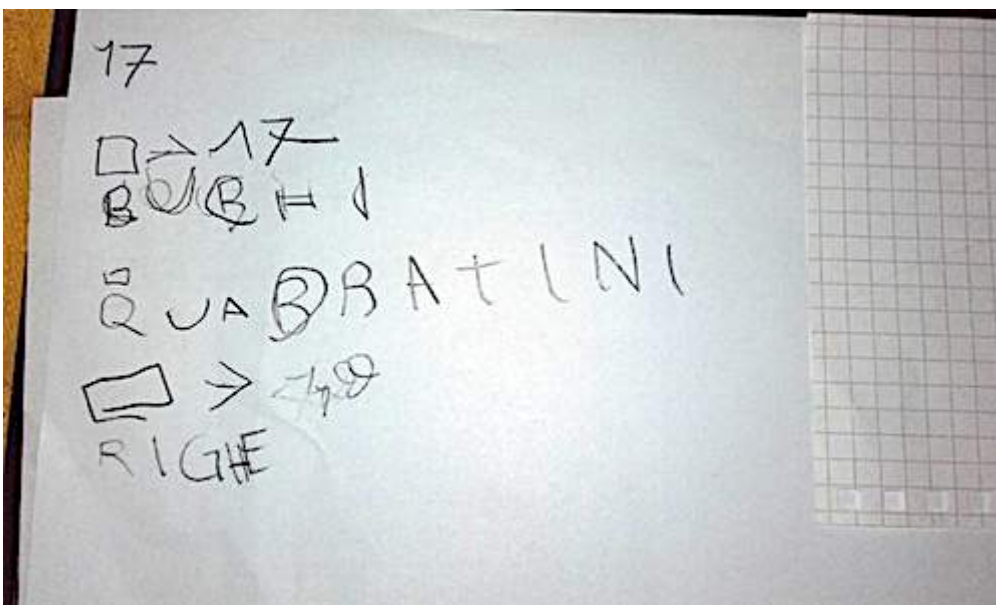 17
□ → 17
BUBHI
QUABRATINI
□ →
RIGHE